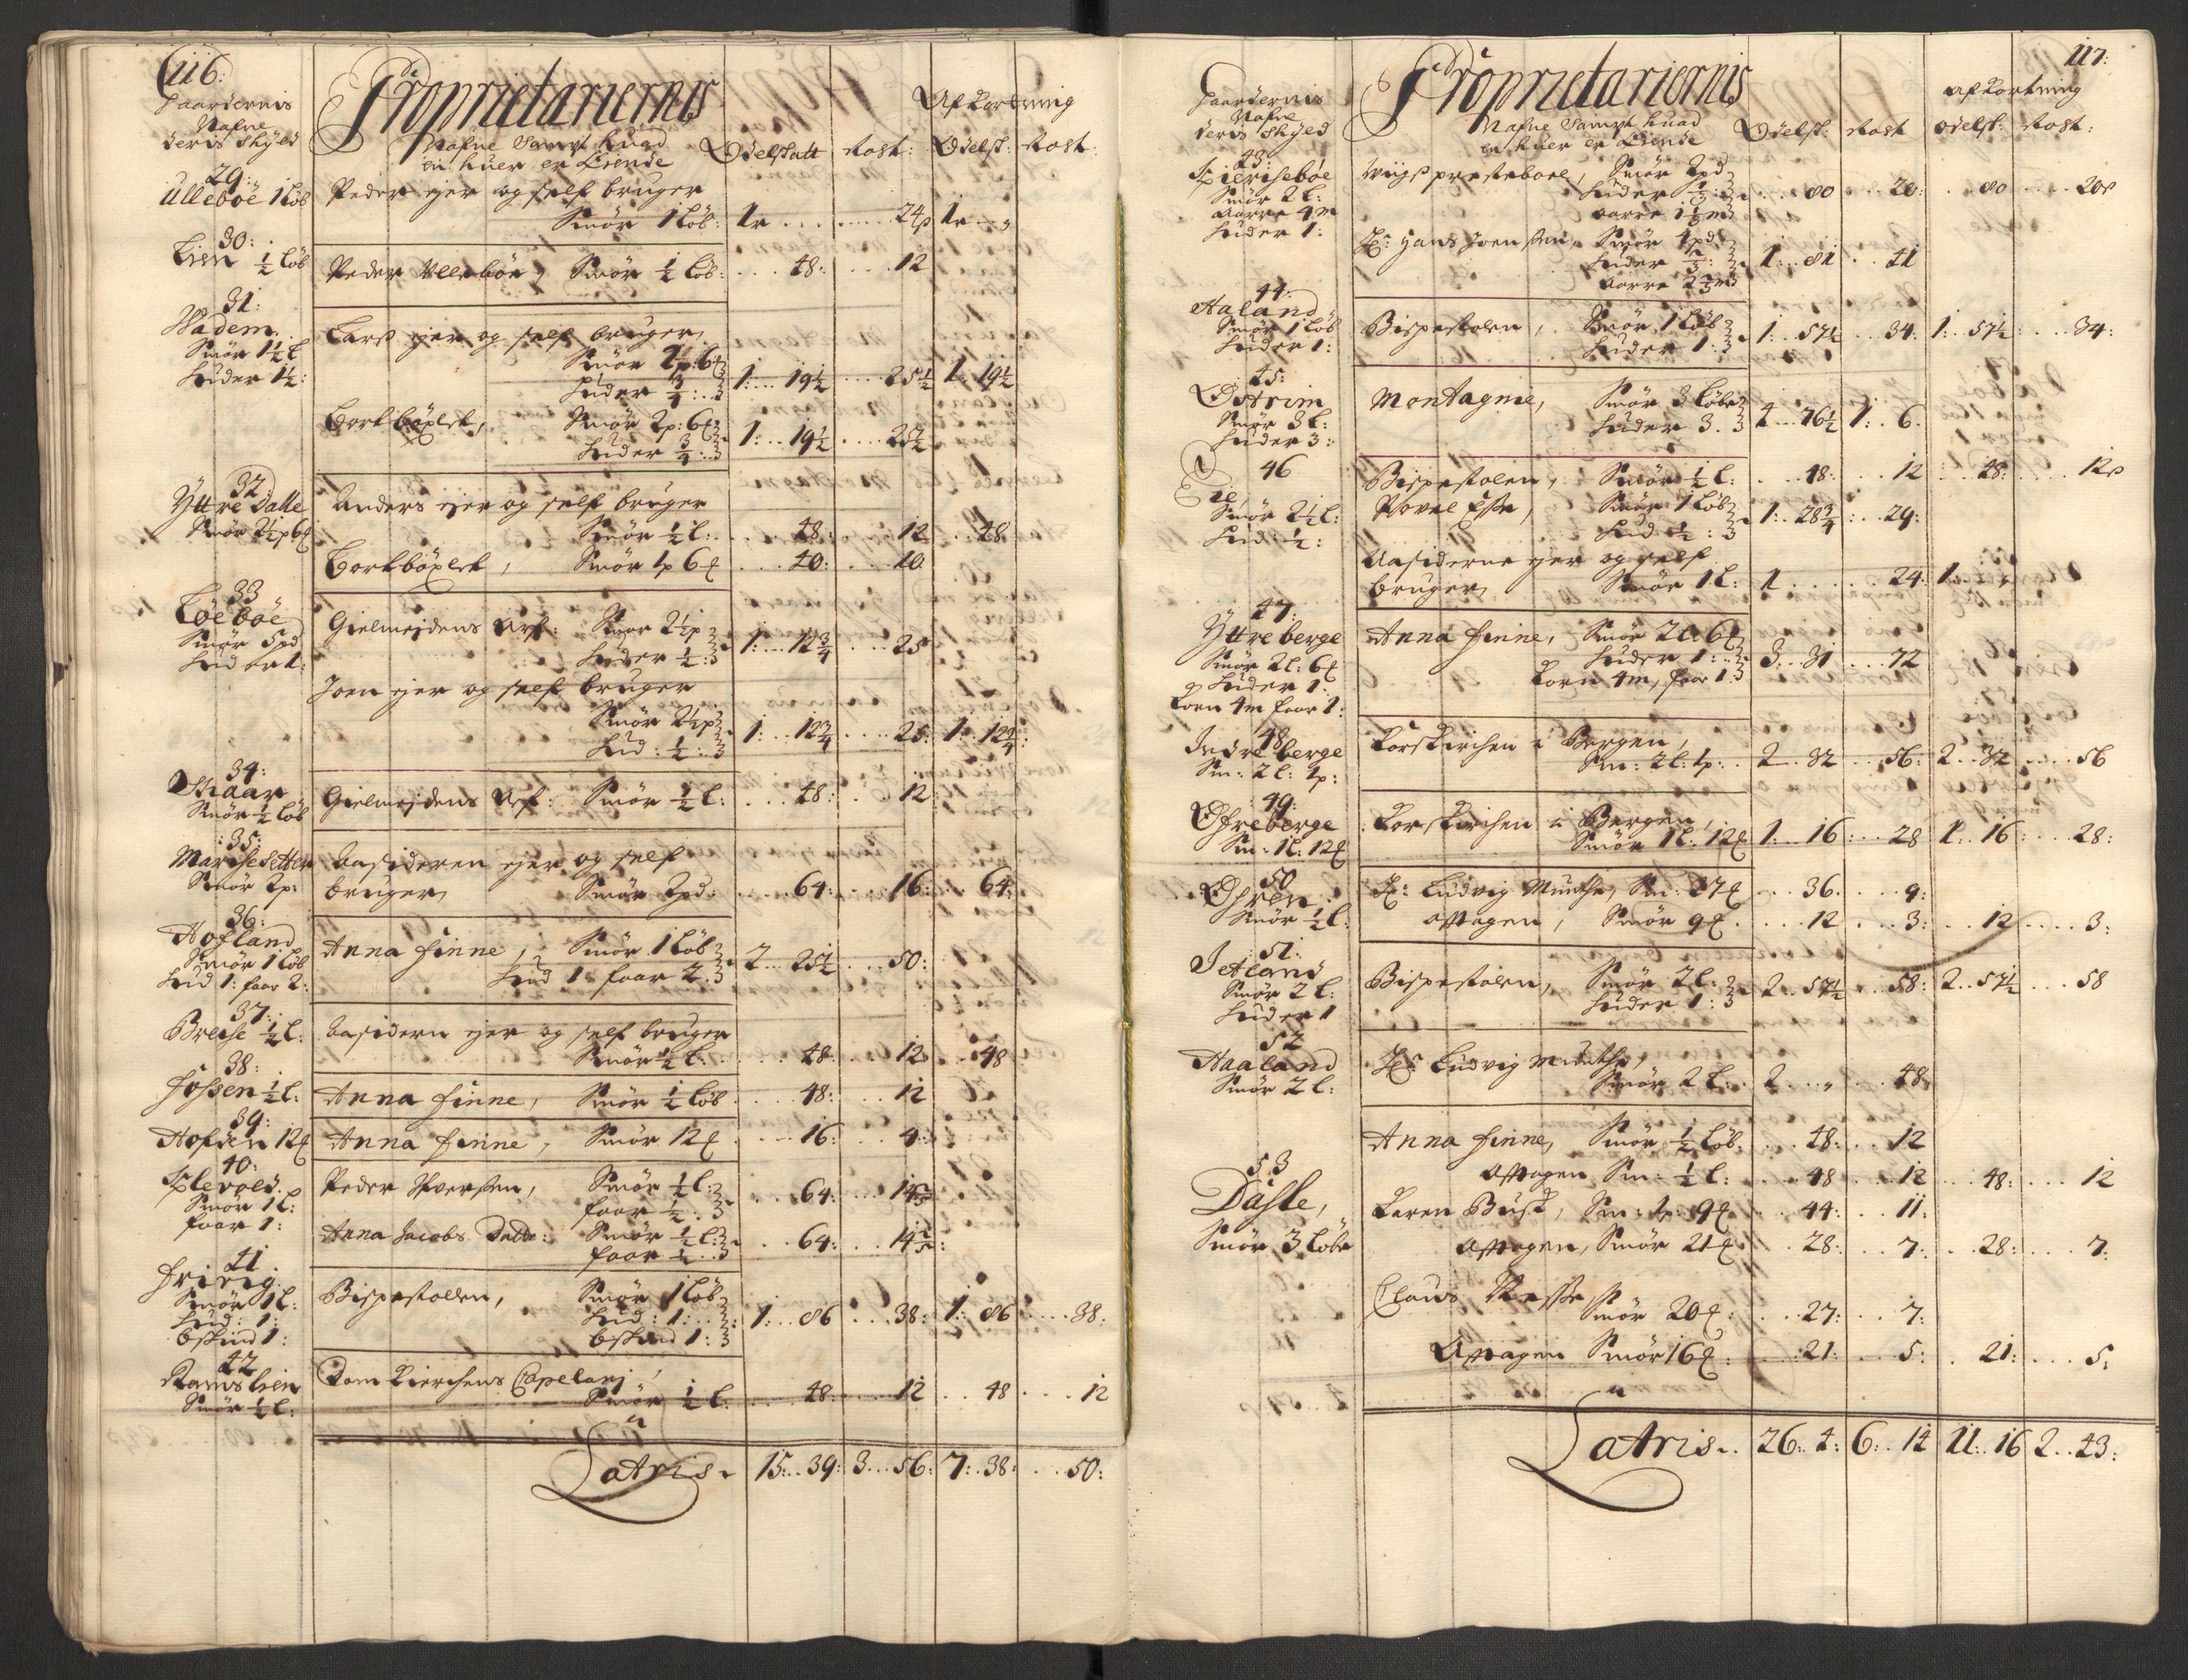 116:
Gaardernis
Nafne
deris Skyld
Proprietariernis
Nafne Sampt huad
en huer er Eiende
Odelskatt
Rost:
Afkortning
Odelsk:
Rost:
29:
Ulleböe 1 löb
Peder ejer og self bruger
Smör 1 löb: 1 . . . . 24 1
30:
Lien ½ löb
Peder Ulleböe, Smör ½ löb: . . 48: . . 12
31:
Wadem.
Smör 1½ l
Huder 1½:
Lars ejer og self bruger,
Smör 2p: 6
Huder ¾: 1: . . 19½ . . . 25½ 1 19½
Smör 2p: 6
Huder ¾: 1: . . 19½ . . . 25½
32
Yttre Dalle
Smör 2½p 6
Anders ejer og self bruger
Smör ½ l: . . 48: . . 12 . . 48
Smör 1p 6 . . . 40: . . . 10
33
Löeböe
Smör 5 pd
Hud 1:
Gielmejdens Arf: Smör 2½p
Huder ½: 1: . . 12¾ . . . 25
Joen ejer og self bruger
Smör 2½p
Hud: ½: 1: . . 12¾ . . . 25: 1: 12¾:
34:
Skaar
Smör ½ löb
Gielmejdens Arf: Smör ½ l: . . . 48: . . 12:
35:
Smör 2p:
Aasideren ejer og self
bruger, Smör 2pd: . . . 64: . . 16: . . 64:
36:
Hofland
Smör 1 löb
Hud 1: faar 2:
Anna Finne, Smör 1 löb
Hud 1: faar 2. 2 . . 25½ . . . 50:
37:
Breise ½ l:
Aasidern ejer og self bruger
Smör ½ l: . . 48: . . 12 . . 48
38:
Fossen ½ l:
Anna Finne, Smör ½ löb . . 48: . . 12
39:
Hofden 12
Anna Finne, Smör 12 . . . 16: . . 4:
40:
Smör 1 l:
faar 1:
Peder Iversen, Smör ½ l:
faar ½: . . 64: . . 14⅖
Anna Jacobs Datter: Smör ½ l:
faar ½ . . 64: . . 14⅖:
41
Smör 1 l:
Hud: 1:
Bskind 1:
Bispestollen, Smör 1 löb
Hud: 1:
Bskind 1: 1: . . 86 . . . 38: 1: 86 . . 38:
42
Ramslien
Smör ½ l:
Dom Kierchens Capelanj,
Smör ½ l: . . . 48 . . . 12 . . 48 . . . 12
Latris 15: . . 39: 3 . . 56: 7: . 38: . . 50:
117:
Gaardernis
Nafne
deris Skyld
Proprietariernis
Nafne Sampt huad
en huer er Eiende
Odelsk:
Rost
afkortning
odelsk:
Rost:
43:
Smör 2 l:
Huder 1:
Wiigs prestebol, Smör 2pd
Huder ⅓: . . . 80 . . . 20: . 80 . . . 20
Hr: Hans Joensen, Smör 4pd
Huder ⅔: 1: . 81 . . 41
44:
Aaland
Smör 1 löb
Huder 1:
Bispestolen, Smör 1 löb
Huder 1: 1: . 57½ . . 34: 1: . 57½ . . . 34:
45:
Østrim
Smör 3 l:
Huder 3:
Montagnie, Smör 3 löb
Huder 3. 4 . . 76½ 1: . 6.
46
Smör 2½ l:
Hud: ½:
Bispestolen, Smör ½ l: . . 48: . . 12 . . 48: . . . 12
Smör 1 löb
Hud ½: 1: . 28¾ . . 29:
Aasiderne ejer og self
bruger, Smör 1 l: 1 . . . . 24: 1
47
Yttreberge
Smör 2 l: 6
Huder 1:
Korn 4m faar 1:
Anna Finne, Smör 2 l: 6
Huder 1:
Korn 4m, faar 1: 3 . . 31 . . . 72
48
Indreberge
Sm: 2 l: 1p:
Korskirchen i Bergen,
Sm: 2 l: 1p: . . 2 . . 32 . . . 56: 2 . . 32 . . . 56
49:
Øfreberge
Sm: 1 l: 12
Korskirchen i Bergen,
Smör 1 l: 12 1: . . 16: . . 28 1: . 16: . . . 28:
50
Øfren:
Smör ½ l:
Hr: Ludvig Munthe, Sm: 27 . . . 36. . . 9:
afftagen, Smör 9 . . . 12 . . . 3: . . 12 . . . 3:
51:
Setland
Smör 2 l:
Huder 1
Bispestolen, Smör 2 l:
Huder 1: 2 . . 57½ . . 58: 2 . . 57½ . . . 58
52
Haaland
Smör 2 l:
Hr: Ludvig Munthe,
Smör 2 l: . 2 . . . . . 48
53
Dasle,
Smör 3 löb
Anna Finne, Smör ½ löb . . 48: . . 12
afftagen Sm: ½ l: . . . 48 . . . 12 . . 48: . . . 12
Karen Busk, Sm: 1p: 9 . . 44: . . 11:
afftagen, Smör 21 . . 28: . . 7: . . 28: . . . 7:
Smör 20: . . . 27: . . 7:
Afftagen Smör 16: . . . 21: . . 5: . 21: . . . 5:
Latris . . 26: . 4: 6: . 14 11: . 16 2 . . 43: